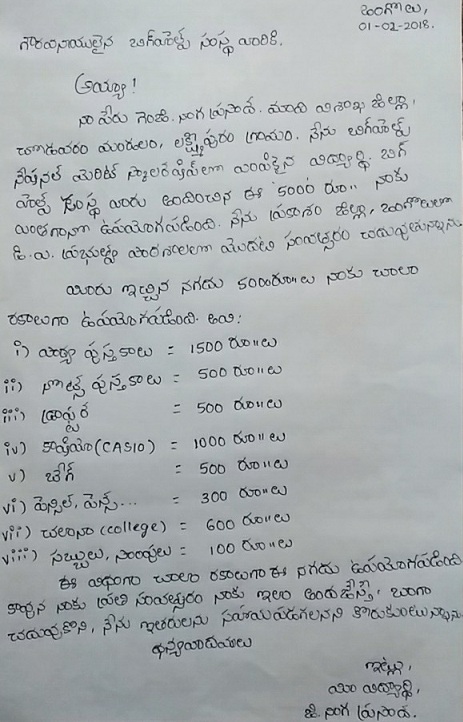 ఒంగోలు,
01-02-2018.
గౌరవనీయులైన బిగ్‌హెల్ప్ సంస్థ వారికి.
అయ్యా!
నా పేరు గెంజి. గంగ ప్రసాద్. మాది విశాఖ జిల్లా,
మండలం, లక్ష్మీపురం గ్రామం. నేను బిగ్‌హెల్ప్
నేషనల్ మెరిట్ స్కాలర్‌షిప్‌లో ఎంపికైన విద్యార్థి. బిగ్
హెల్ప్ సంస్థ వారు అందించిన ఈ 5000 రూ॥ నాకు
ఎంతగానో ఉపయోగపడింది. నేను ప్రకాశం జిల్లా, ఒంగోలులో
డి.ఎ. ప్రభుత్వ పాఠశాలలో మొదటి సంవత్సరం చదువుతున్నాను.
మీరు ఇచ్చిన నగదు 5000రూ॥లు నాకు చాలా
రకాలుగా ఉపయోగపడింది. అవి:
i) పాఠ్య పుస్తకాలు = 1500 రూ॥లు
ii) నోట్స్ పుస్తకాలు = 500 రూ॥లు
iii) డ్రాఫ్టర్ = 500 రూ॥లు
iv) కాసియో (CASIO) = 1000 రూ॥లు
v) బ్యాగ్ = 500 రూ॥లు
vi) పెన్సిల్, పెన్స్... = 300 రూ॥లు
vii) చలానా (college) = 600 రూ॥లు
viii) సబ్బులు, షాంపులు = 100 రూ॥లు
ఈ విధంగా చాలా రకాలుగా ఈ నగదు ఉపయోగపడింది
కావున నాకు ప్రతి సంవత్సరం నాకు ఇలా అందజేస్తే, బాగా
చదువుకొని, నేను ఇతరులను సహాయపడగలనని కోరుకుంటున్నాను.
ధన్యవాదములు
ఇట్లు,
మీ విద్యార్థి,
జి. గంగ ప్రసాద్.